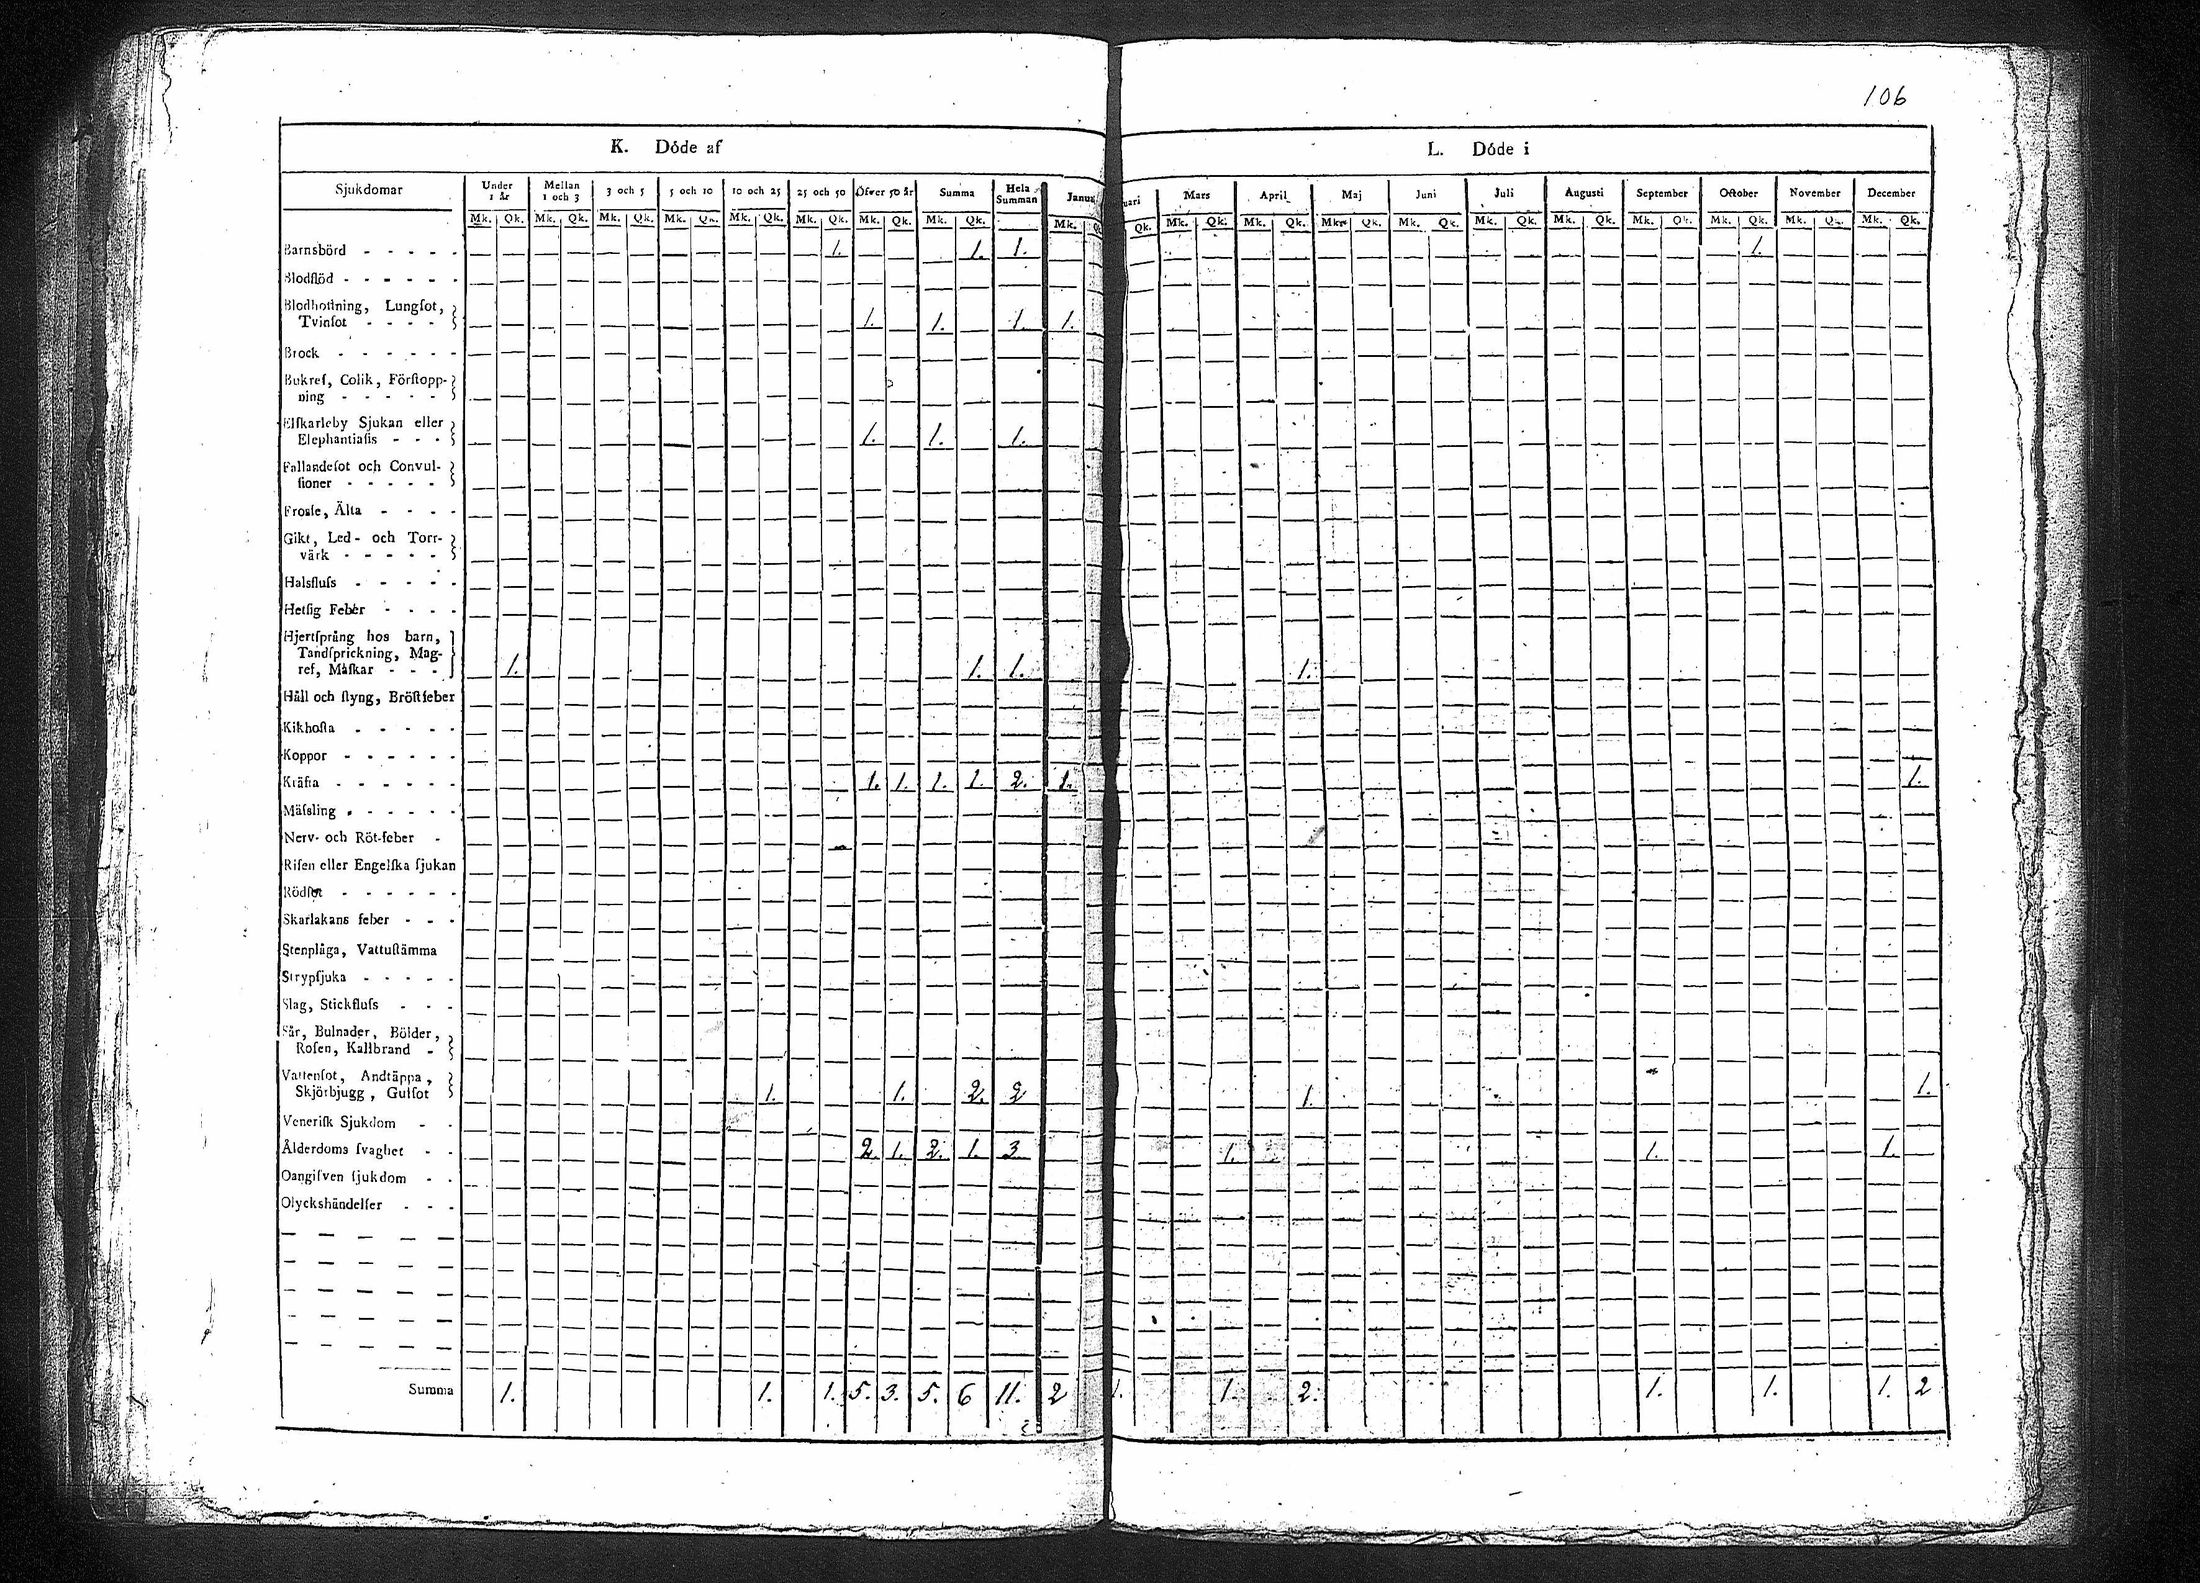 106
K. Döde af
L. Döde i
Sjukdomar Under 1 år Mellan 1 och 3 3 och 5 5 och 10 10 och 25 25 och 50 Öfver 50 år Summa Hela Summan Mars April Maj Juni Juli Augusti September October November December
Mk. Qk. Mk. Qk. Mk. Qk. Mk. Qk. Mk. Qk. Mk. Qk. Mk. Qk. Mk. Qk. Mk. Qk. Mk. Qk. Mk. Qk. Mk. Qk. Mk. Qk. Mk. Qk. Mk. Qk. Mk. Qk. Mk. Qk. Mk. Qk. Mk. Qk.
Barnsbörd - - - - - 1. 1. 1. 1.
Blodflöd - - - - - -
Blodhostning, Lungſot,
Tvinſot - - - - 1. 1. 1. 1.
Brock - - - - - -
Bukref, Colik, Förſtopp-
ning - - - - -
Elſkarleby Sjukan eller
Elephantiaſis - - - 1. 1. 1.
Fallandeſot och Convul-
ſioner - - - - -
Frosſe, Älta - - - -
Gikt, Led- och Torr-
värk - - - - -
Halsfluſs - - - - -
Hetſig Feber - - - -
Hjertſprång hos barn,
Tandſprickning, Mag-
ref, Måſkar - - - 1. 1. 1. 1.
Håll och ſtyng, Bröſtfeber
Kikhoſta - - - - -
Koppor - - - - - -
Kräfta - - - - - - 1. 1. 1. 1. 2. 1. 1.
Mäſsling - - - - - -
Nerv- och Röt-feber -
Riſen eller Engelſka ſjukan
Rödſot - - - - - -
Skarlakans feber - - -
Stenplåga, Vattuſtämma
Strypſjuka - - - - -
Slag, Stickfluſs - - -
Sår, Bulnader, Bölder,
Roſen, Kallbrand -
Vattenſot, Andtäppa,
Skjörbjugg, Gulſot 1. 1. 2. 2 1. 1.
Veneriſk Sjukdom - -
Ålderdoms ſvaghet - - 2. 1. 2. 1. 3 1. 1. 1.
Oangifven ſjukdom - -
Olyckshändelſer - - -
Summa 1. 1. 1. 5. 3. 5. 6 11. 2 1. 1. 2. 1. 1. 1. 2